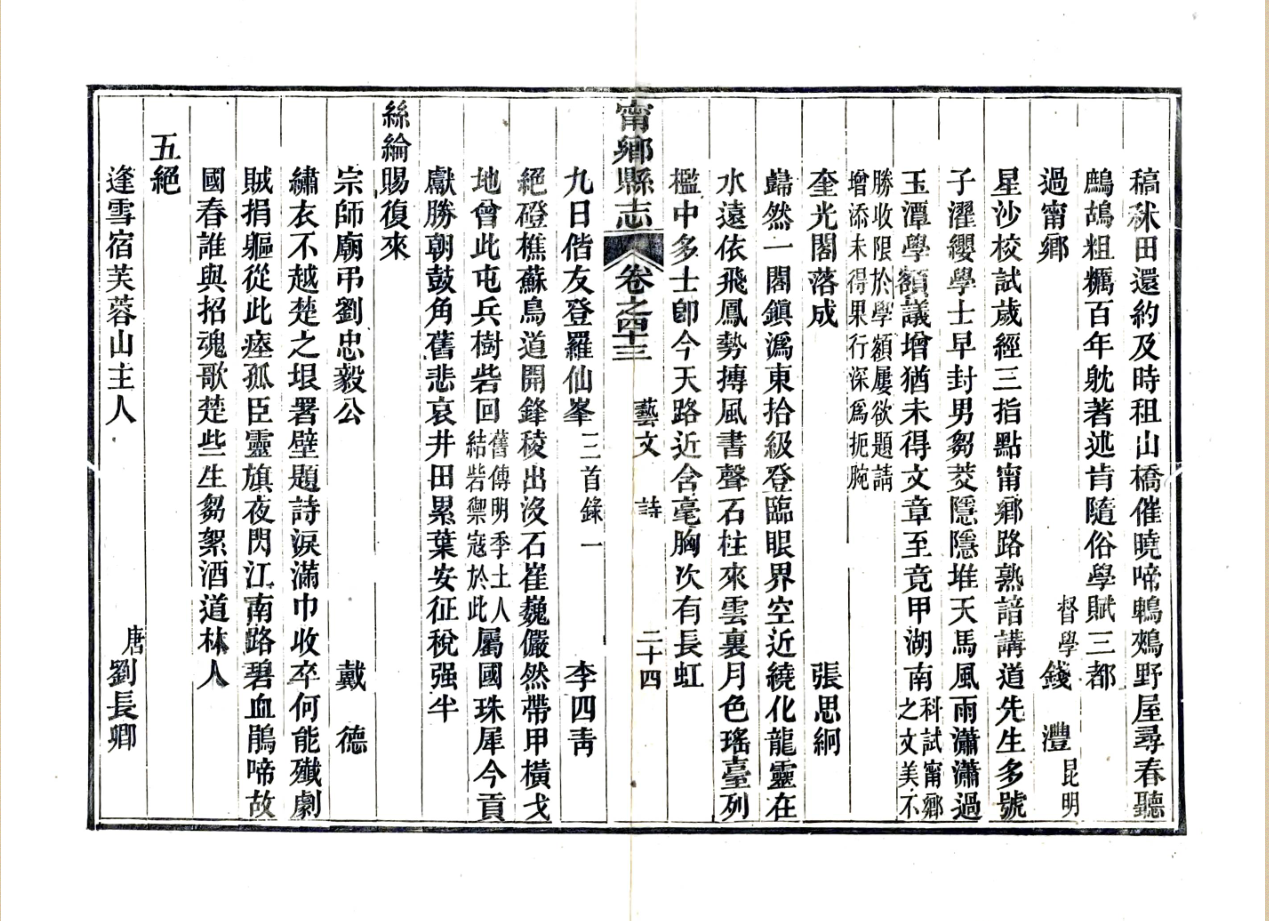 稿秫田還約及時租山橋催曉啼鵯鵊野屋尋春聽
鷓鴣粗糲百年躭著述肯隨俗學賦三都
過甯鄉　督學錢　灃昆明
星沙校試歲經三指點甯鄉路熟諳講道先生多號
子濯纓學士早封男芻茭隱隱堆天馬風雨瀟瀟過
玉潭學額議增猶未得文章至竟甲湖南科試甯鄉之文美不
勝收限於學額屢欲題請增添未得果行深爲扼腕
奎光閣落成　張思綗
巋然一閣鎮潙東拾級登臨眼界空近繞化龍靈在
水遠依飛鳳勢摶風書聲石柱來雲裏月色瑤臺列
檻中多士卽今天路近含毫胸次有長虹
甯鄉縣志　卷之四十三　藝文　詩　二十四
九日偕友登羅仙峯二首錄一　李四靑
絕磴樵蘇鳥道開鋒稜出沒石崔巍儼然帶甲橫戈
地曾此屯兵樹砦回舊傳明季土人結砦禦寇於此屬國珠犀今貢
獻勝朝鼓角舊悲哀井田累葉安征稅强半
絲綸賜復來
宗師廟弔劉忠毅公　戴　德
繡衣不越楚之垠署壁題詩淚滿巾收卒何能殲劇
賊捐軀從此瘞孤臣靈旗夜閃江南路碧血鵑啼故
國春誰與招魂歌楚些生芻絮酒道林人
五絕
逢雪宿芙蓉山主人　唐劉長卿